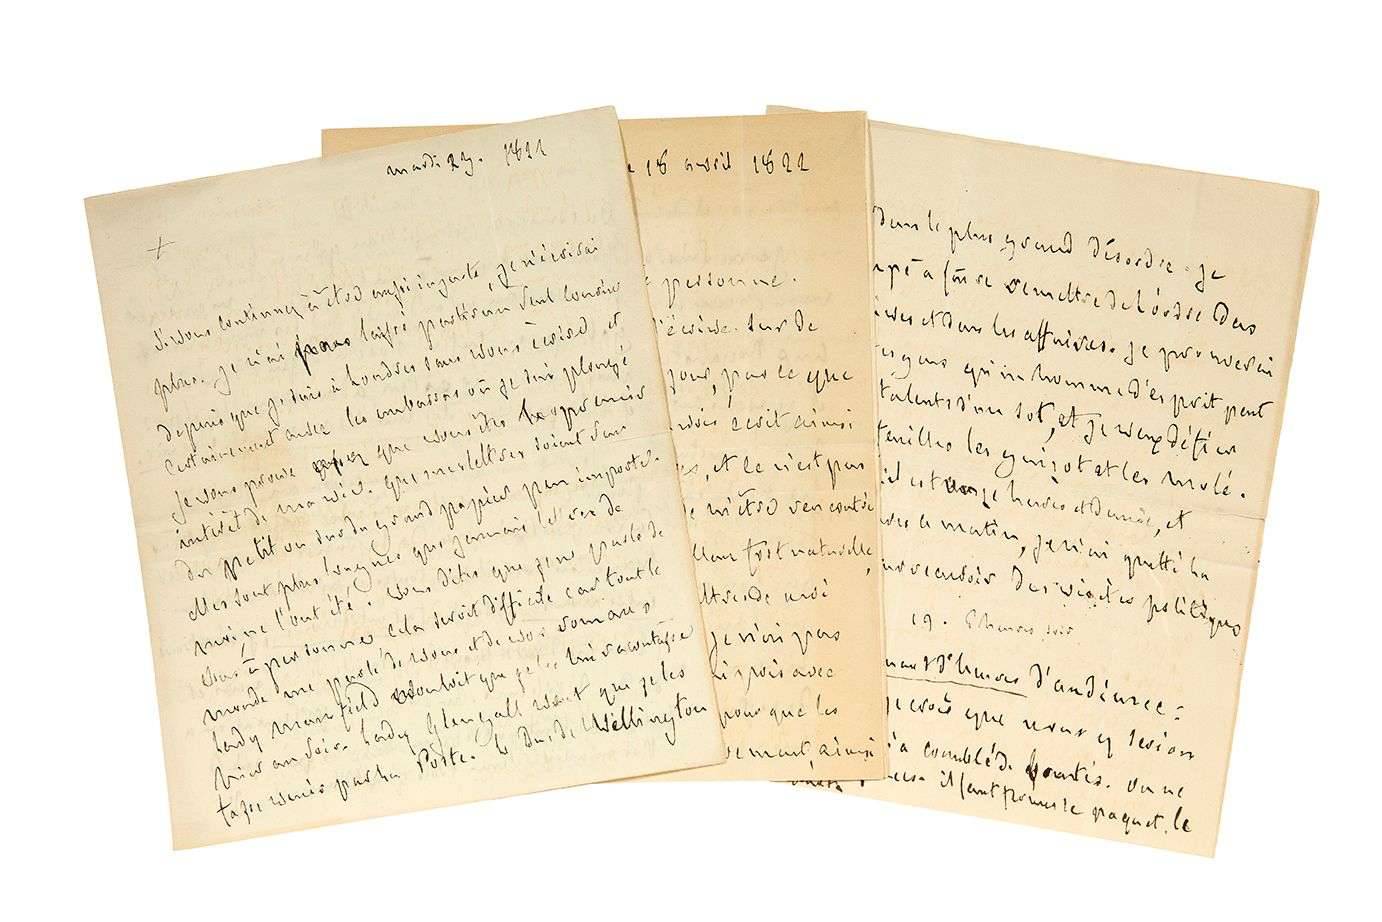 mardi 23. 1822
+
Si vous continuez à être aussi injuste, je n'écrirai
plus. Je n'ai pas laissé partir un seul courier
depuis que je suis à Londres sans vous écrire, et
certainement avec les embarras où je suis plongé
je vous prouve que vous êtes le premier
intérêt de ma vie. que mes lettres soient sur
du petit ou sur du grand papier peu importe.
elles sont plus longues que jamais lettres de
moi ne l'ont été. vous dites que je ne parle de
vous à personne cela seroit difficile car tout le
monde me parle de vous et de vos romans
Lady Mansfield vouloit que j'en racontasse
hier au soir. Lady Glengall veut que je les
fasse venir par la Poste. le Duc de Wellington
18 avril 1822
personne.
d'écrire. sur de
jour, parce que
écrit ainsi
et ce n'est pas
m'être rencontré
fort naturelle,
de moi
je n'ai pas
avec
pour que les
ainsi
dans le plus grand désordre. Je
à faire remettre de l'ordre dans
et dans les affaires. Je prouverai
gens qu'un homme d'esprit peut
talents d'un sot, et je veux défier
les guizot et les molé.
il est onze heures et demie, et
matin, je n'ai quitté la
recevoir des visites politiques
19. 8 heures soir
heures d'audience:
je crois que nous y serons
m'a comblé de bontés. on ne
il faut fermer le paquet. le